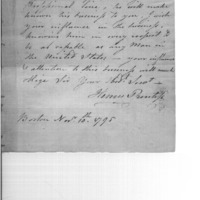 Professional Line, he will make
known his business to you. I ask
your influence in the business.
knowing him in every respect to
be as capable as any Man in
the United States in your influence
& attention to this business will much
Oblige Sir Your
Boston Nov 16. 1795